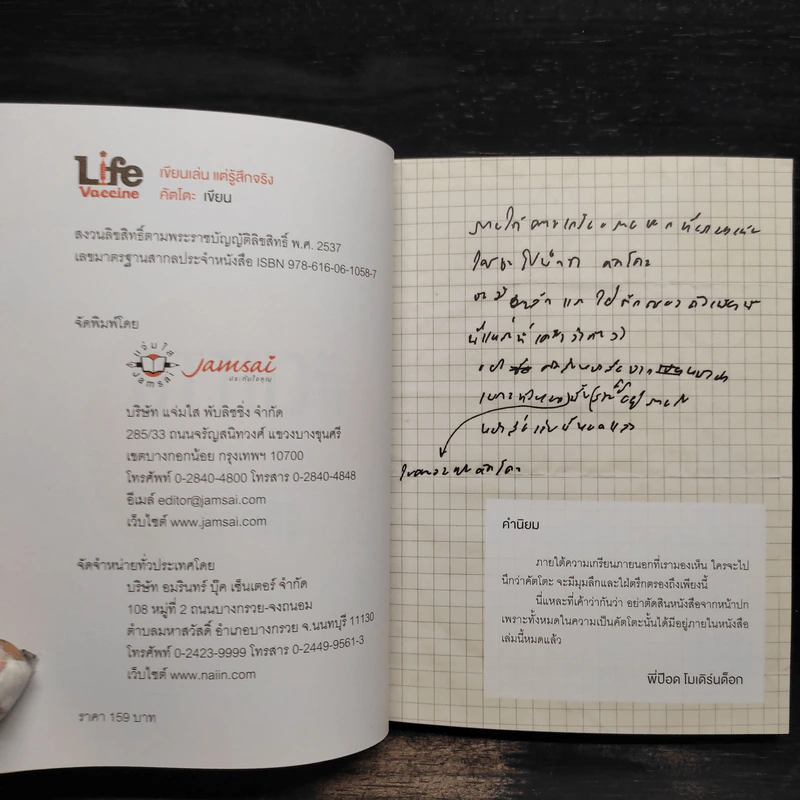 Life
Vaccine
เขียนเล่น แต่รู้สึกจริง
คัตโตะ เขียน
สงวนลิขสิทธิ์ตามพระราชบัญญัติลิขสิทธิ์ พ.ศ. 2537
เลขมาตรฐานสากลประจำหนังสือ ISBN 978-616-06-1058-7
จัดพิมพ์โดย
แจ่มใส
Jamsai
Jamsai
ประทับใจคุณ
บริษัท แจ่มใส พับลิชชิ่ง จำกัด
285/33 ถนนจรัญสนิทวงศ์ แขวงบางขุนศรี
เขตบางกอกน้อย กรุงเทพฯ 10700
โทรศัพท์ 0-2840-4800 โทรสาร 0-2840-4848
อีเมล์ editor@jamsai.com
เว็บไซต์ www.jamsai.com
จัดจำหน่ายทั่วประเทศโดย
บริษัท อมรินทร์ บุ๊ค เซ็นเตอร์ จำกัด
108 หมู่ที่ 2 ถนนบางกรวย-จงถนอม
ตำบลมหาสวัสดิ์ อำเภอบางกรวย จ.นนทบุรี 11130
โทรศัพท์ 0-2423-9999 โทรสาร 0-2449-9561-3
เว็บไซต์ www.naiin.com
ราคา 159 บาท
คำนิยม
ภายใต้ความเกรียนภายนอกที่เรามองเห็น ใครจะไป
นึกว่าคัตโตะ จะมีมุมลึกและใฝ่ตรึกตรองถึงเพียงนี้
นี่แหละที่เค้าว่ากันว่า อย่าตัดสินหนังสือจากหน้าปก
เพราะทั้งหมดในความเป็นคัตโตะนั้นได้มีอยู่ภายในหนังสือ
เล่มนี้หมดแล้ว
พี่ป๊อด โมเดิร์นด็อก